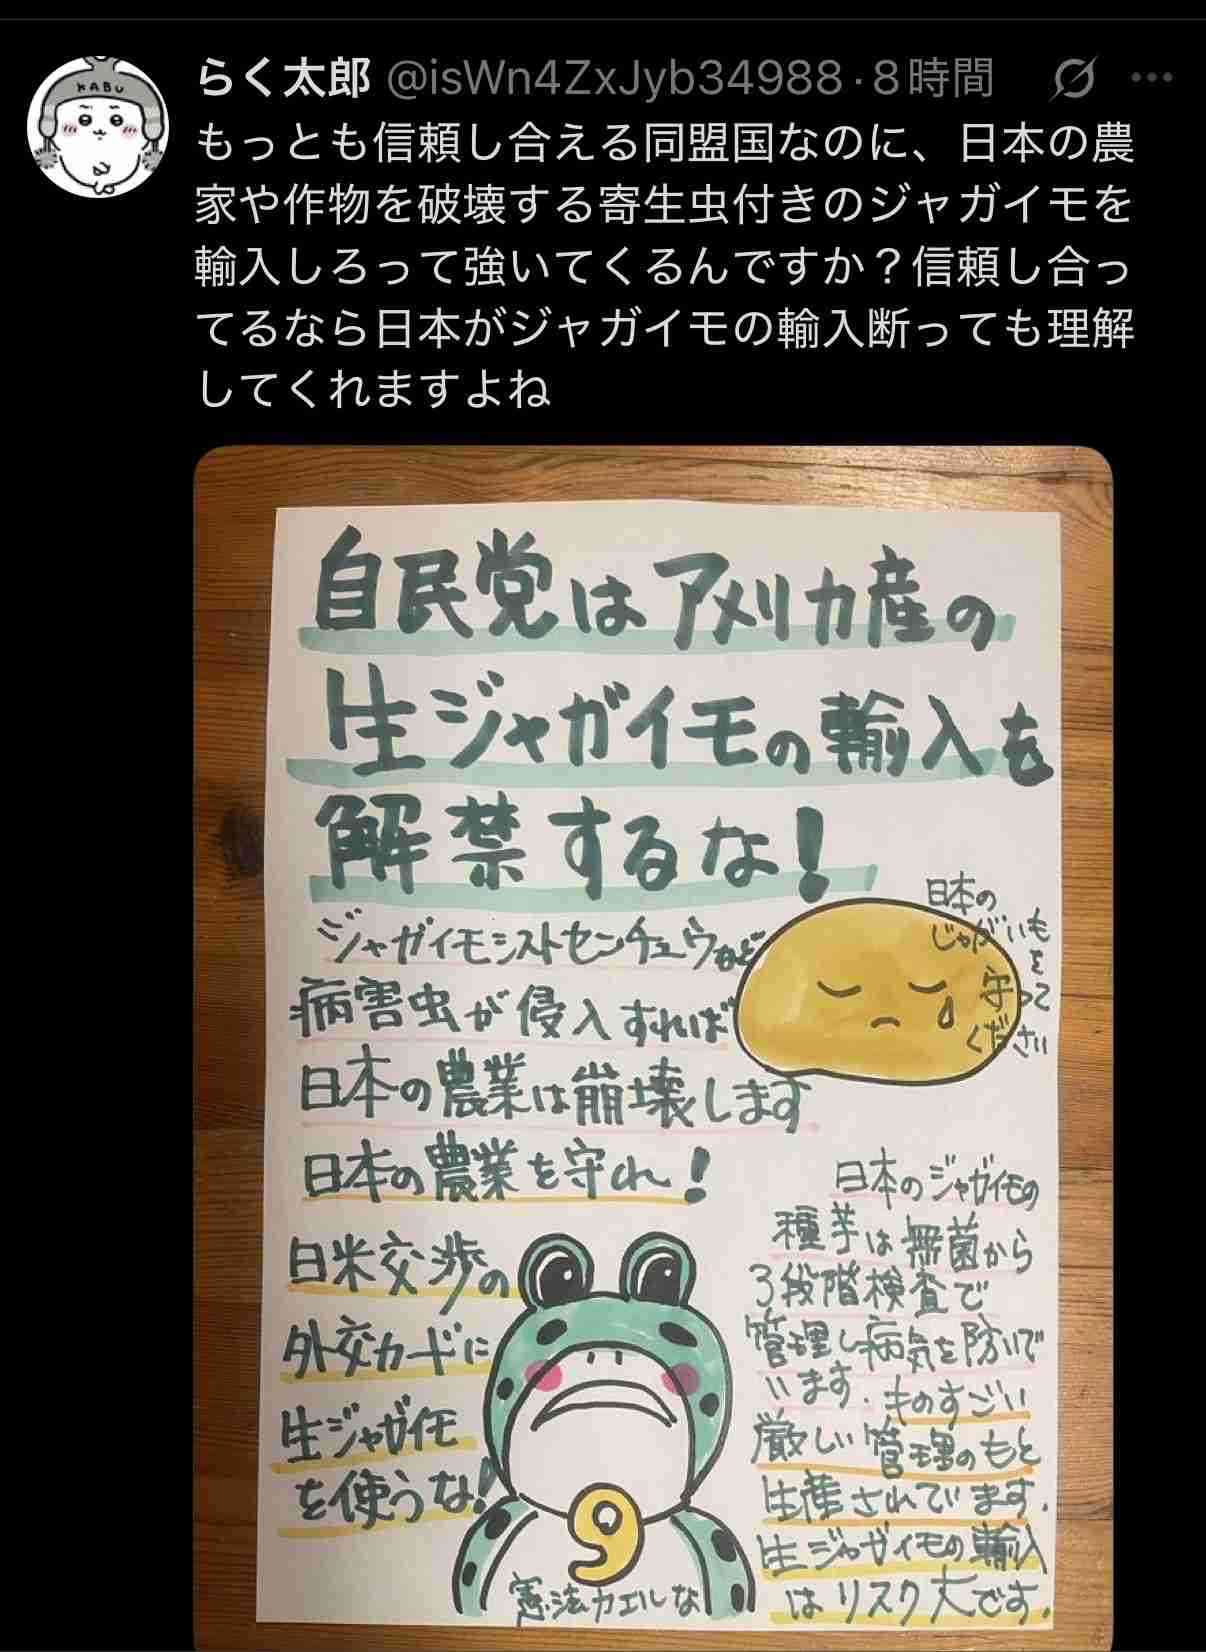 らく太郎 @isWn4ZxJyb34988·8時間
KABU
もっとも信頼し合える同盟国なのに、日本の農
家や作物を破壊する寄生虫付きのジャガイモを
輸入しろって強いてくるんですか？信頼し合っ
てるなら日本がジャガイモの輸入断っても理解
してくれますよね
自民党はアメリカ産の
生ジャガイモの輸入を
解禁するな！
ジャガイモシストセンチュウなど
病害虫が侵入すれば
日本の農業は崩壊します
日本の農業を守れ！
日本の
じゃがいも
を
守って
ください
日米交渉の
外交カードに
生ジャガイモ
を使うな！
日本のジャガイモの
種芋は無菌から
3段階検査で
管理し病気を防いで
います。ものすごい
厳しい管理のもと
生産されています。
生ジャガイモの輸入
はリスク大です。
9
憲法カエルな